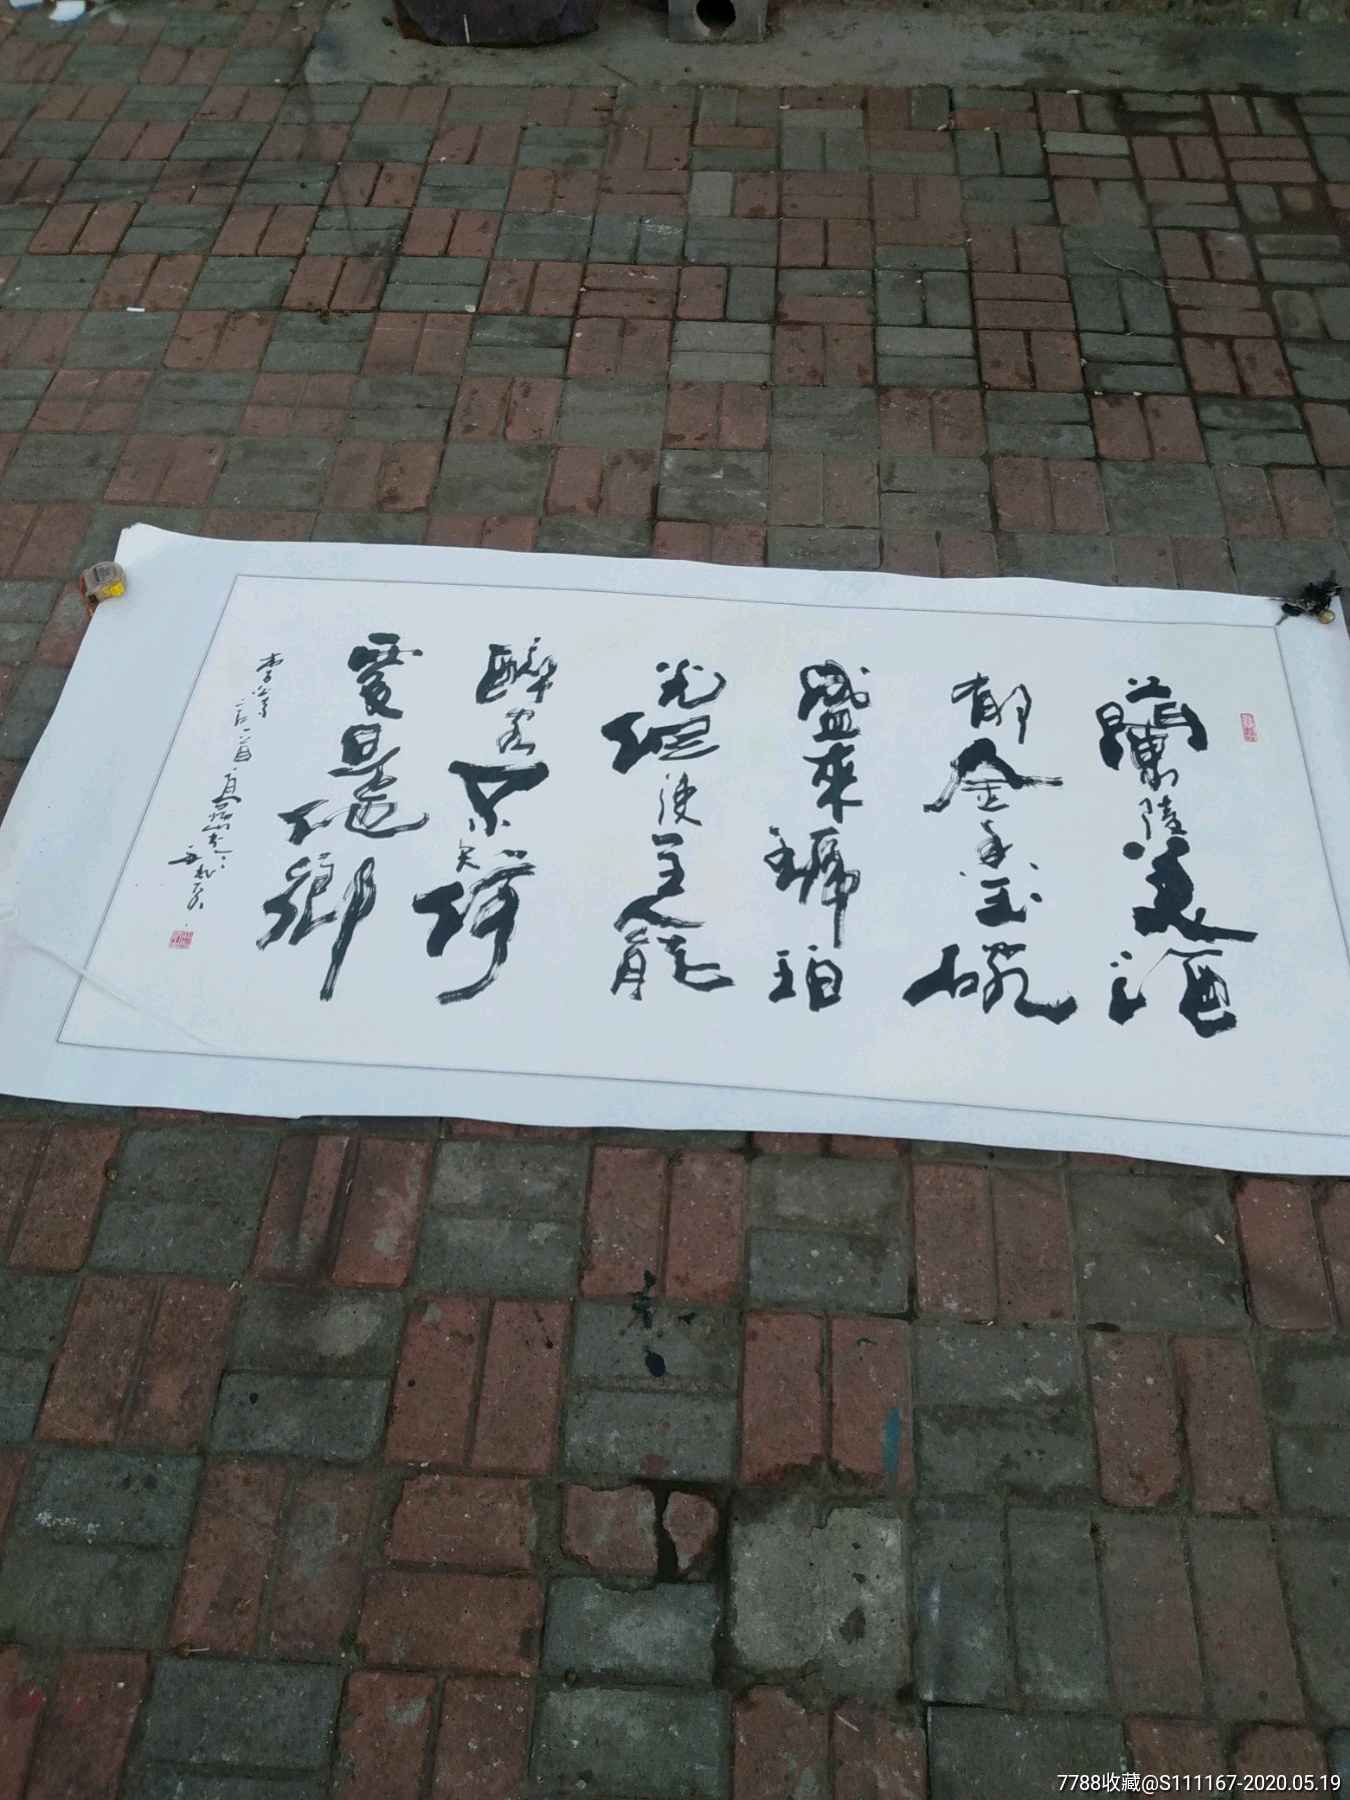 蘭陵美酒
郁金香玉碗
盛來琥珀
光但使主人能
醉客不知何
處是他鄉
7788收藏@S111167-2020.05.19